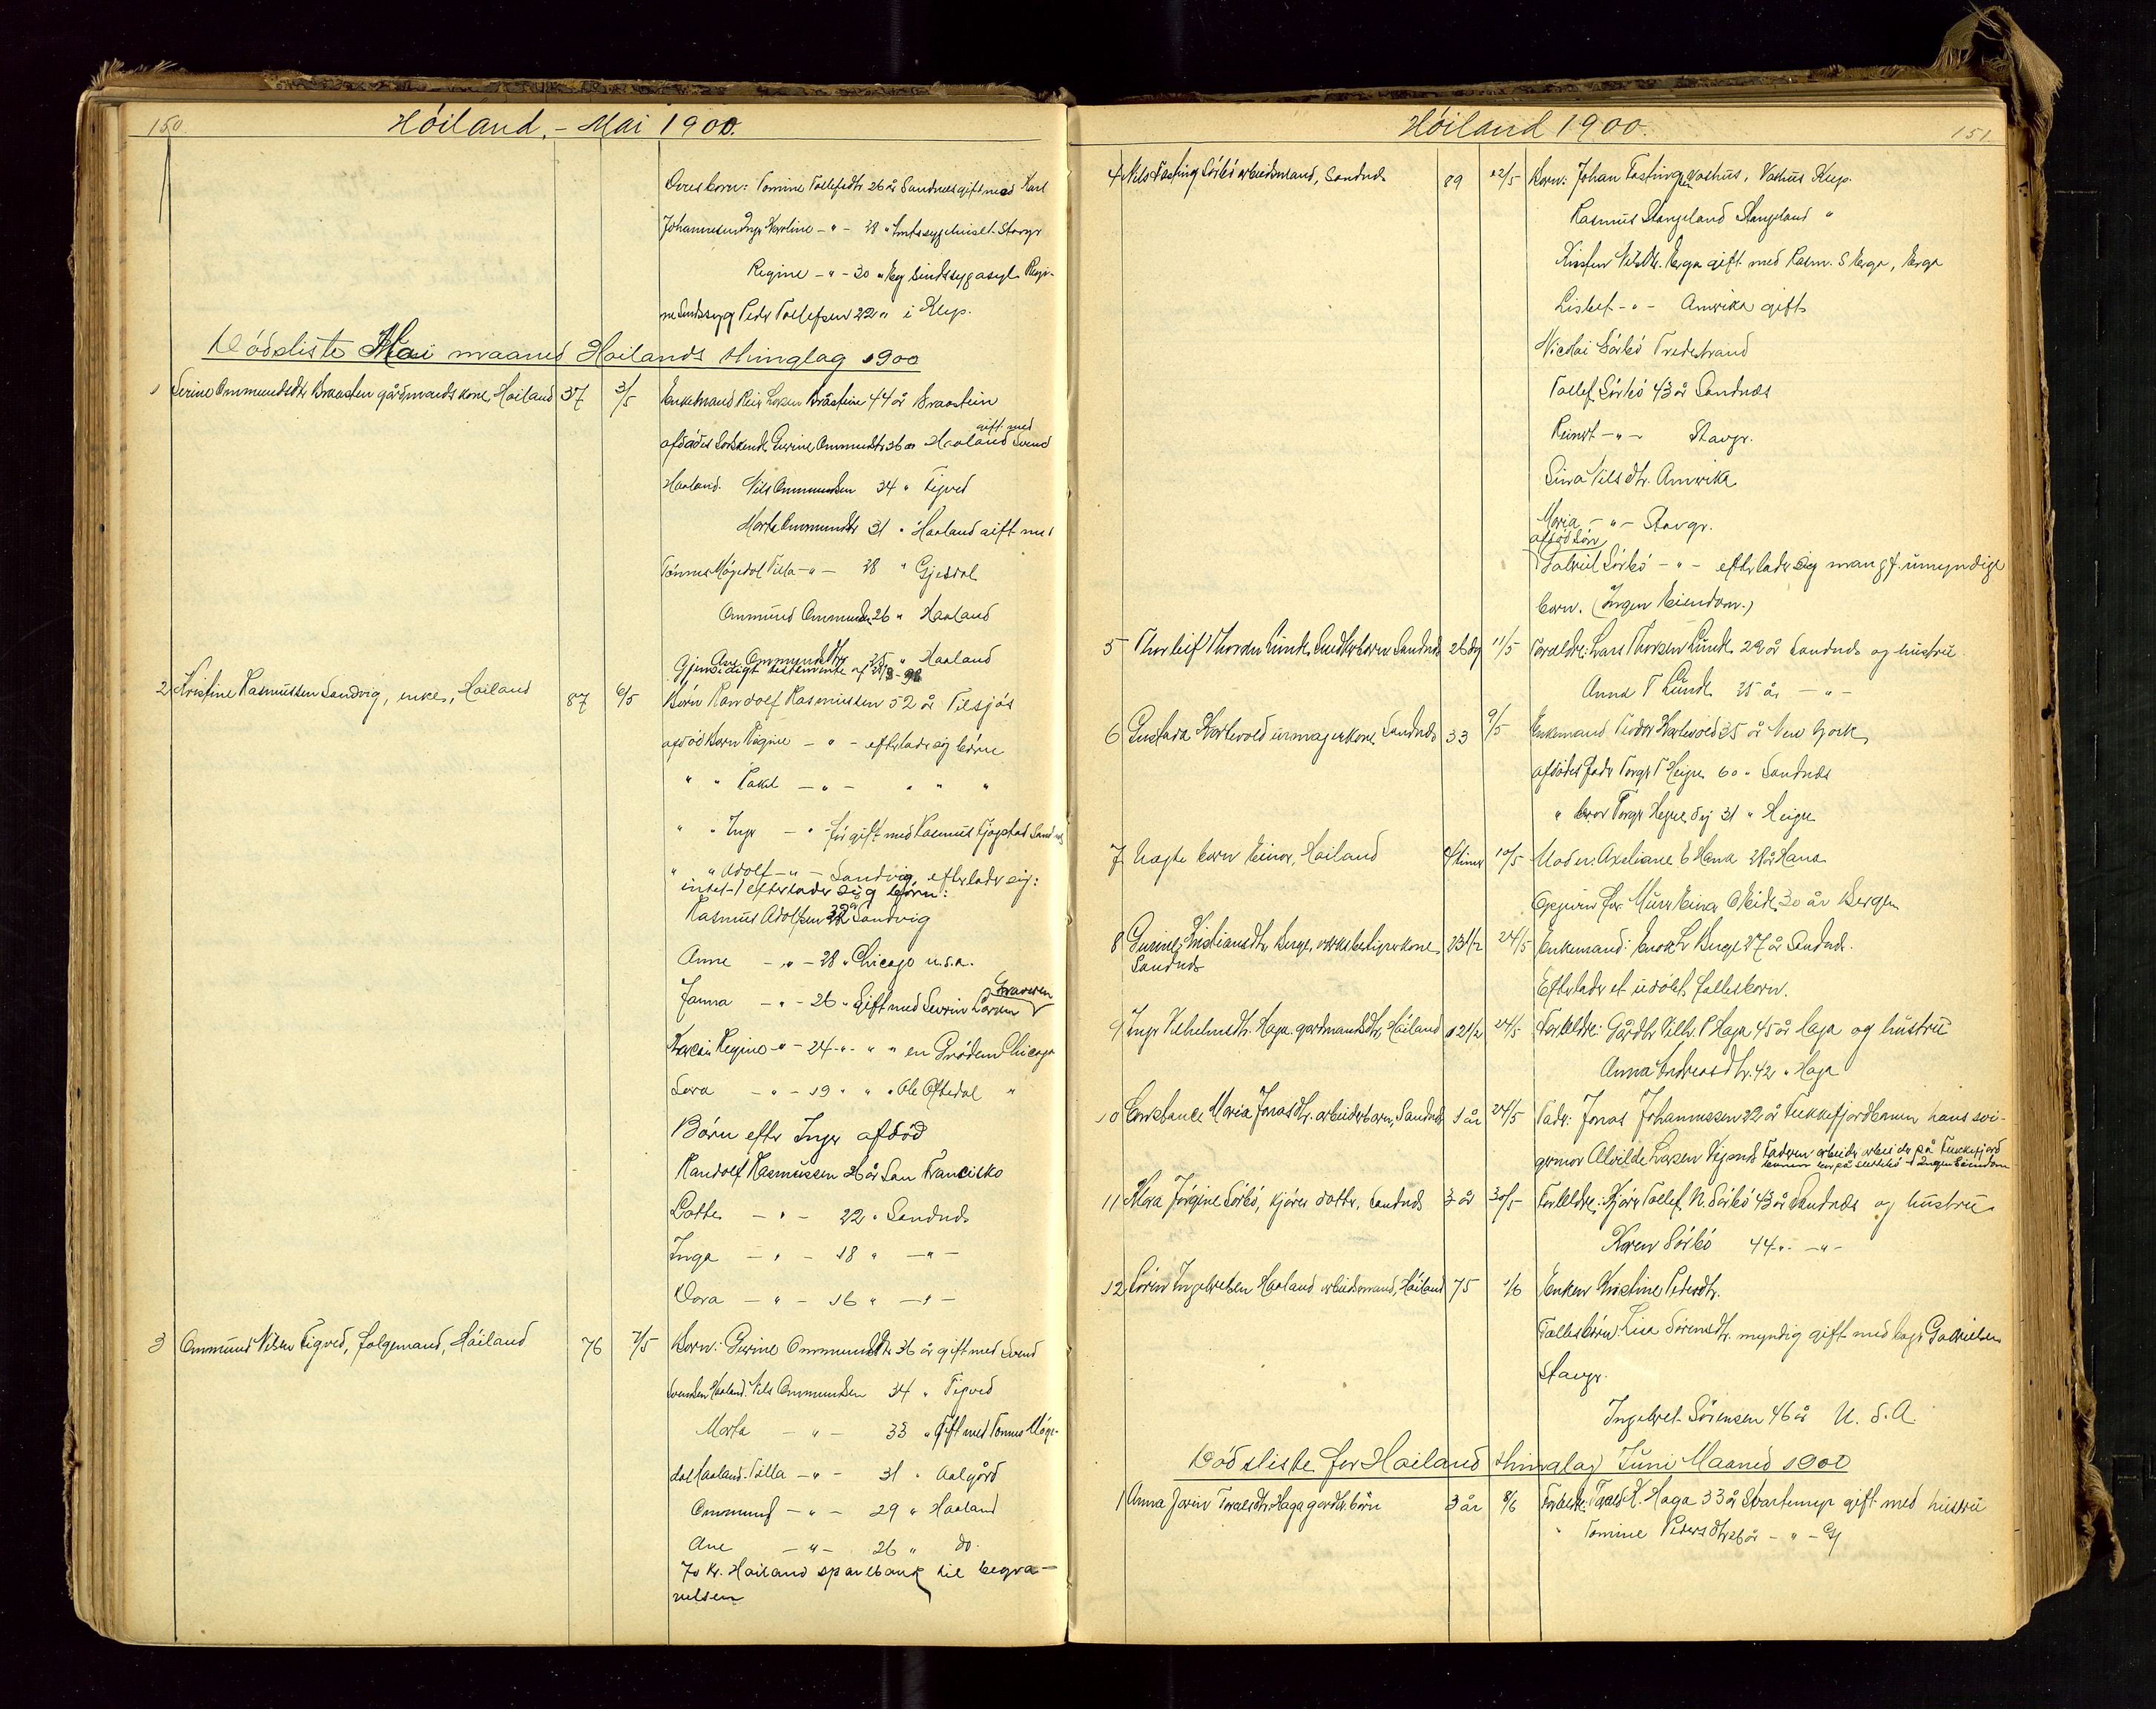 150.
Höiland, - Mai 1900.
Deres born: Tomine Tollefsdtr 26 år Sandnes gift med Karl
Johannesen Inga Karoline - " - 28 " Amtssygehuset Stavgr
Regine - " - 30 " Eg Sindssygasyl Regi-
ne Sindssyg Peder Tollefsen 22 " i Klep.
Dödsliste Mai maaned Höilands thinglag 1900
1 Serine Ommundsdtr Braasten gårdmandskone Höiland 37 3/5 Enkemand Reier Larsen Bråstein 44 år Braastein
gift med
afdödes Sødskende Gurine Ommundsdtr 36 år Haaland Svend
Haaland. Nils Ommundsen 34 " Figved
Marta Ommundsdtr 31 " Haaland gift med
Tönnes Mögedal Villa - " - 28 " Gjesdal
Ommund Ommundsen 26 " Haaland
Ane Ommundsdtr 25 " Haaland
Gjensidigt testemente af
2 Kristine Rasmussen Sandvig, enke, Höiland 87 6/5 Børn Randolf Rasmussen 52 år Tilsjös
afdöd Barn Regine - " - efterlader sig börn
" " Rakel - " - " " "
" " Inger - " - før gift med Rasmus Fjogstad Sandnes
" " Adolf - " - Sandvig efterlader sig:
intet - / efterlader sig børn:
Rasmus Adolfsen 32 år Sandvig
Anne - " - 28 " Chicago u.s.a.
Janna - " - 26 " Gift med Severin Larsen
Karoline Regine " - 24 " - " " en Grödem Chicago
Sara - " - 19 " " " Ole Oftedal "
Børn efter Inger afdöd
Randolf Rasmussen 26 år San Francisko
Lotte - " - 22 " Sandnes
Inga - " - 18 " - " -
Dora - " - 16 " - " -
3 Ommund Nilsen Figved, folgemand, Höiland 76 7/5 Born: Gurine Ommundsdtr 36 år gift med Svend
Svendsen Haaland. Nils Ommundsen 34 " Figved
Marta - " - 33 " Gift med Tönnes Möge-
dal Haaland. Villa - " - 31 " Aalgård
Ommund - " - 29 " Haaland
Ane - " - 26 " do.
70 kr. Höiland sparebank til begra-
velsen
Höiland 1900.
151
4 Nils Tasting Sörbö arbeidsmand, Sandnes 89 12/5 Born: Johan Tasting Vashus, Vashus Klep.
Rasmus Stangeland Stangeland "
Kirsten Nilsdtr. Erga gift med Rasm. S Erga, Erga
Lisbet - " - Amerika gift
Nicolai Sörbö Tvedestrand
Tollef Sörbö 43 år Sandnes
Reinert - " - Stavgr.
Sina Nilsdtr. Amerika
Maria - " - Stavgr.
afdöd Sön
Gabriel Sörbö - " - efterlader sig mange umyndige
born. (Ingen Eiendom.)
5 Thorleif Thorsen Lunde, Snedkerbarn Sandnes 26 dg 11/5 Foreldre: Lars Thorsen Lunde 29 år Sandnes og hustru
Anna T Lunde 25 år - " -
6 Gustava Hartevold urmagerkone Sandnes 33 9/5 Enkemand Peder Hartevold 35 år New York
afdödes Fader Torger T Heigre 60 " Sandnes
" bror Torger Heigre dy 31 " Heigre
7 Uægte barn Einar, Höiland timer 10/5 Moder: Axeliane E Hana 28 år Hana
Opgiven far Murer Einar O Eide 30 år Bergen
8 Gurine Kristiansdtr Berge, værksbetjenerkone 23 1/2 24/5 Enkemand: Enok L Berge 27 år Sandnes.
Sandnes
Efterlader et udöbt fallesbarn.
9 Inger Vilhelmsdtr. Haga gardmansdtr, Höiland 12 1/2 24/5 Foreldre: Gårdbr Vilh. P Haga 45 år Haga og hustru
Anna Andreasdtr. 42 " Haga
10 Constance Maria Jonasdtr. arbeiderbarn, Sandnes 1 år 24/5 Fader: Jonas Johannessen 22 år Flekkefjordbanen hans svi-
germor Alvilde Larsen Faderen arbeider på Flekkefjord
banen Ingen Eiendom
11 Olga Jörgine Sörbö, kjörer datter, Sandnes 3 år 30/5 Foreldre: Kjörer Tollef N. Sörbö 43 år Sandnes og hustru
Karen Sörbö 44 " - " -
12 Sören Ingebretsen Haaland arbeidsmand, Höiland 75 1/6 Enken Kristine Pedersdtr.
Fallesbørn: Lisa Sörensdtr. myndig gift med bager Gabrielsen
Stavgr.
Ingebret Sörensen 46 år U. S. A.
Dödsliste for Höiland thinglag Juni Maaned 1900
1 Anna Jorine Toraldsdtr. Haga gardbr. börn 3 år 8/6 Foreldre: Torald K. Haga 33 år Svartemyr gift med hustru
Tomine Pedersdtr 26 år - " -